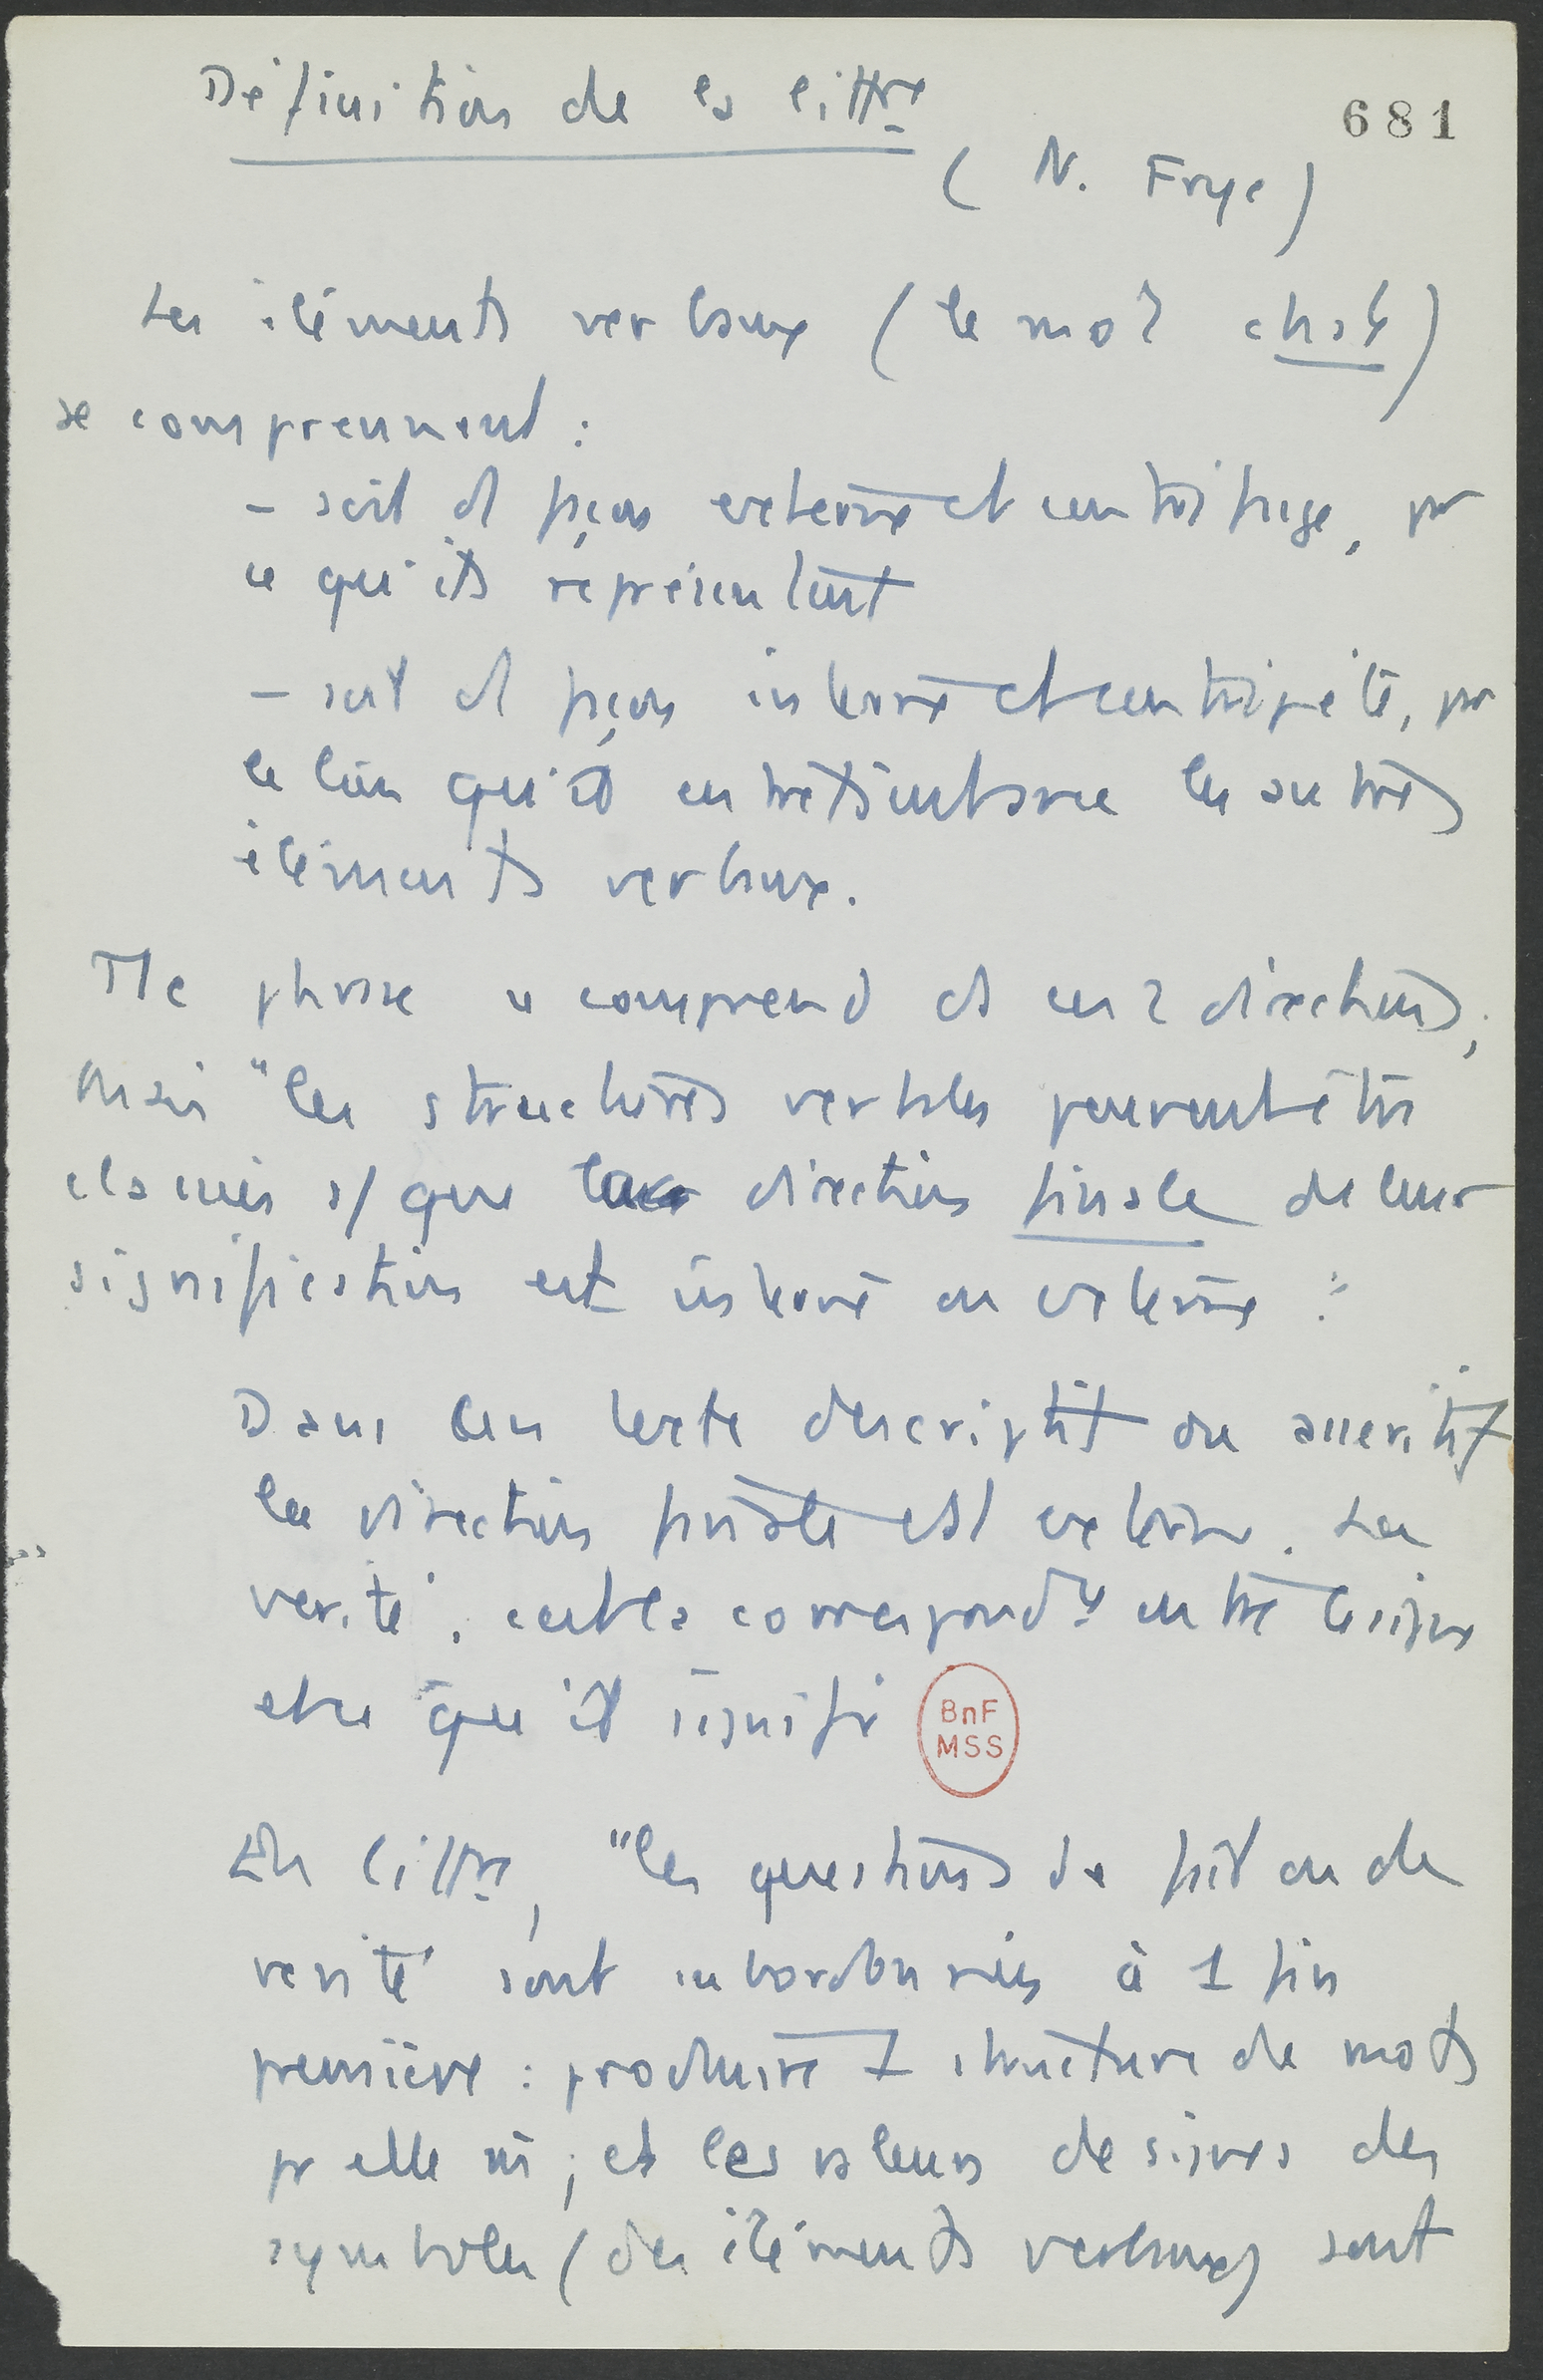 Définition de la littre
681
(N. Frye)
Les éléments verbaux (le mot chat)
se comprennent :
- soit d façon externe et centrifuge, par
ce qu'ils représentent
- soit d façon interne et centripète, par
le lien qu'ils entretiennent avec les autres
éléments verbaux.
Tte phrase se comprend ds ces 2 directions ;
mais "les structures verbales peuvent être
classées s/ que la direction finale de leur
signification est interne ou externe :
Dans un texte descriptif ou assertif
la direction finale est externe. La
vérité, c'est la correspondce entre le signe
et ce qu'il signifie
BnF
MSS
En littre, "les questions de fait ou de
vérité sont subordonnées à 1 fin
première : produire 1 structure de mots
pr elle-m ; et les valeurs de signes des
symboles (des éléments verbaux) sont